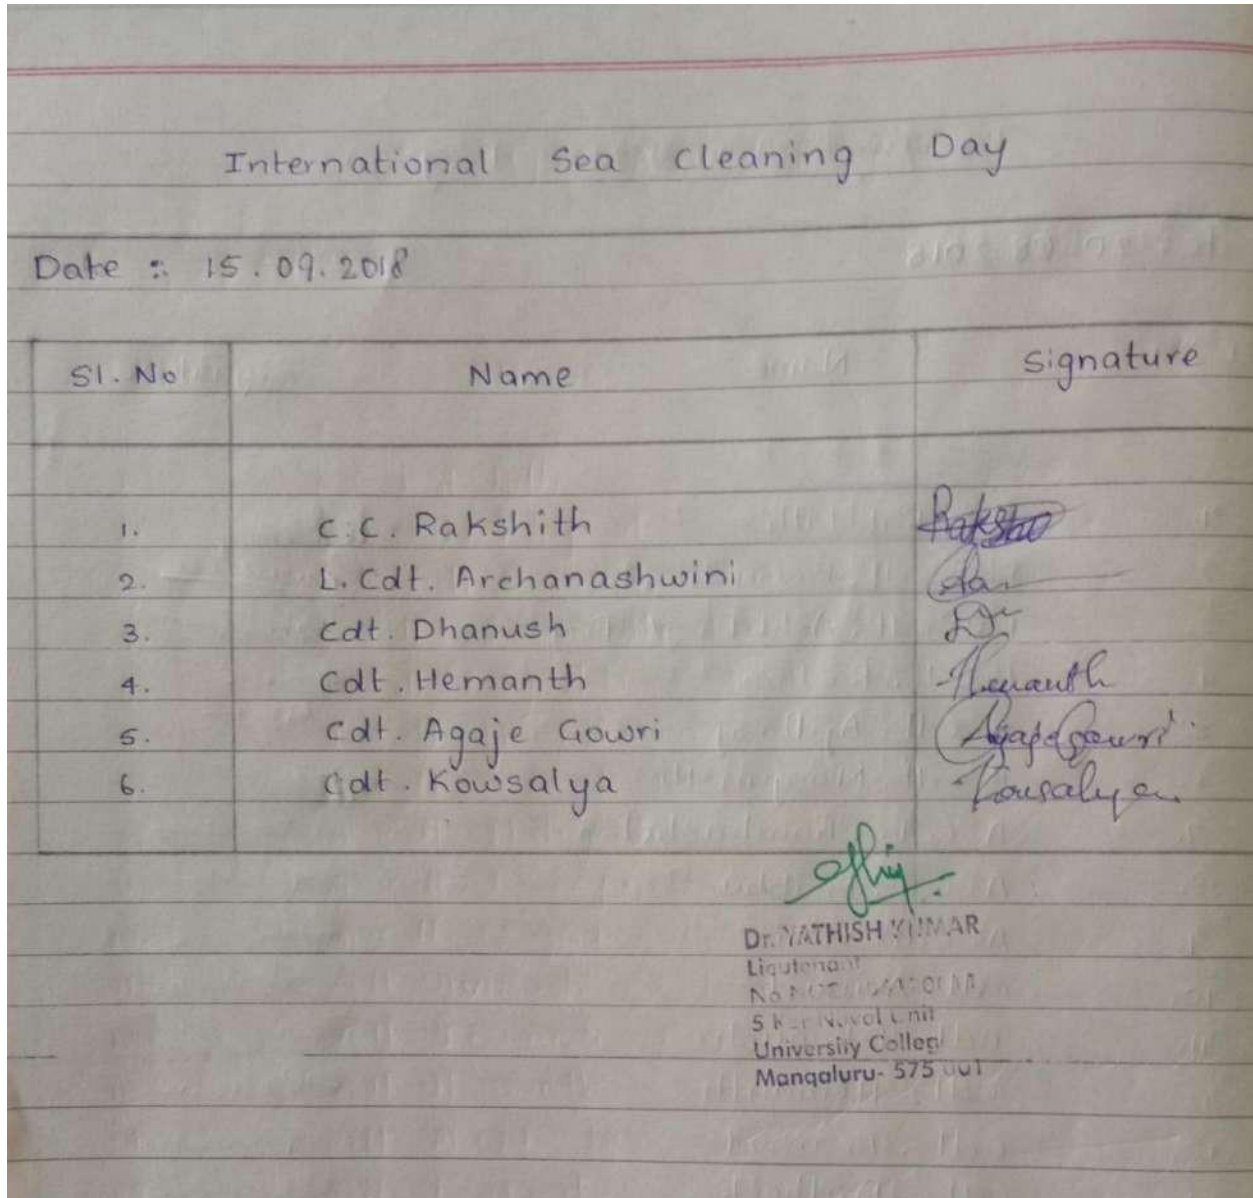 International Sea Cleaning Day
Date : 15.09.2018
Sl. No Name Signature
1. C.C. Rakshith
2. L. Cdt. Archanashwini
3. Cdt. Dhanush
4. Cdt. Hemanth Hemanth
5. Cdt. Agaje Gowri Agaje Gowri
6. Cdt. Kowsalya Kousalya
Dr. YATHISH KUMAR
Lieutenant
5 Naval Unit
University College
Mangaluru- 575 001